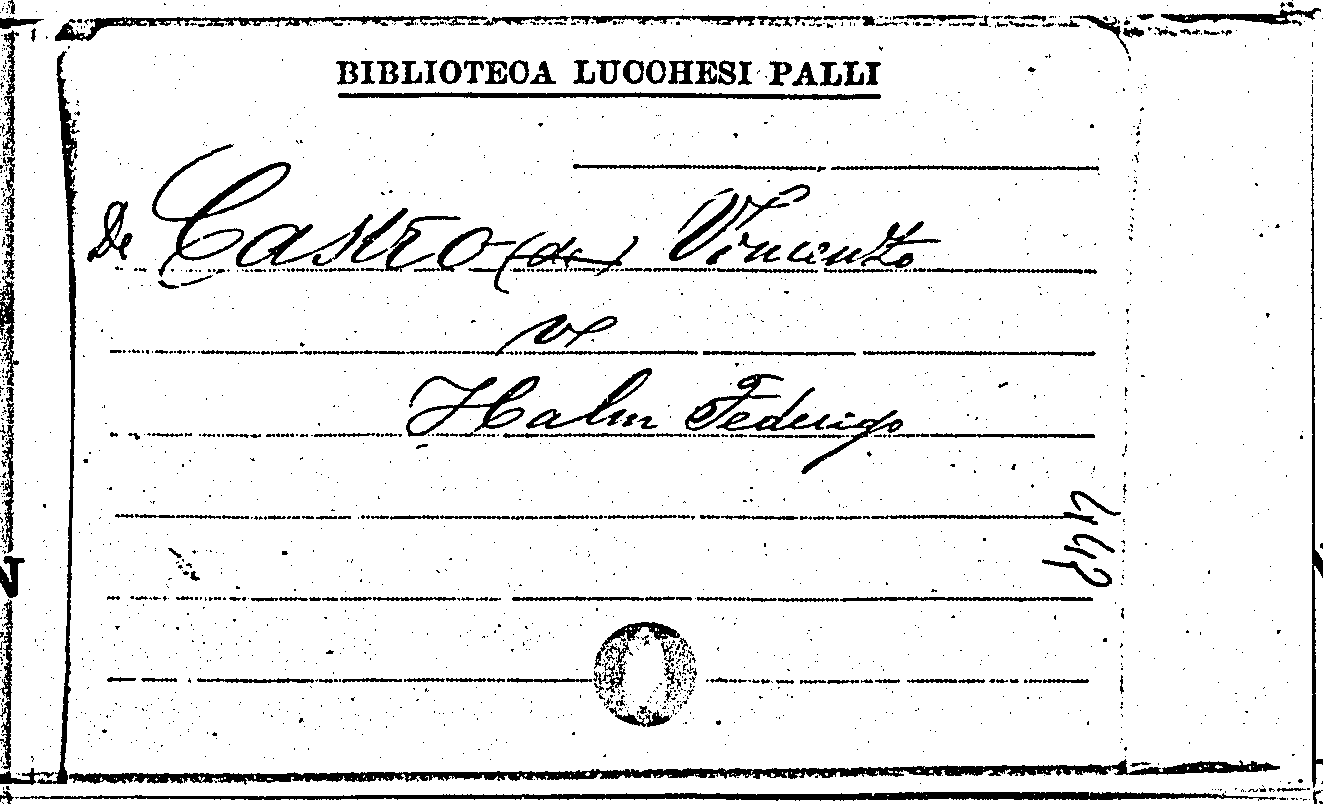 BIBLIOTECA LUCCHESI PALLI
De Castro (de) Vincenzo
v.
Halm Federigo
447